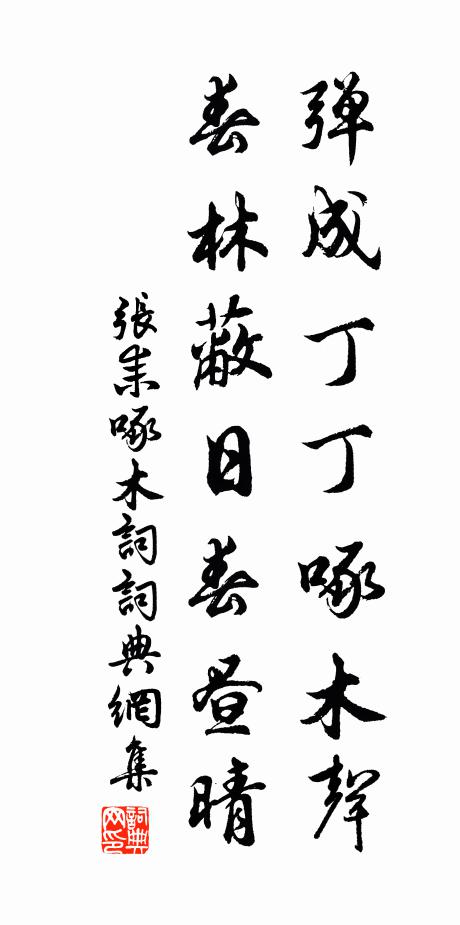 弹成丁丁啄木聲
春林蔽日春昼晴
張耒啄木詞詞典網集
詞典网印